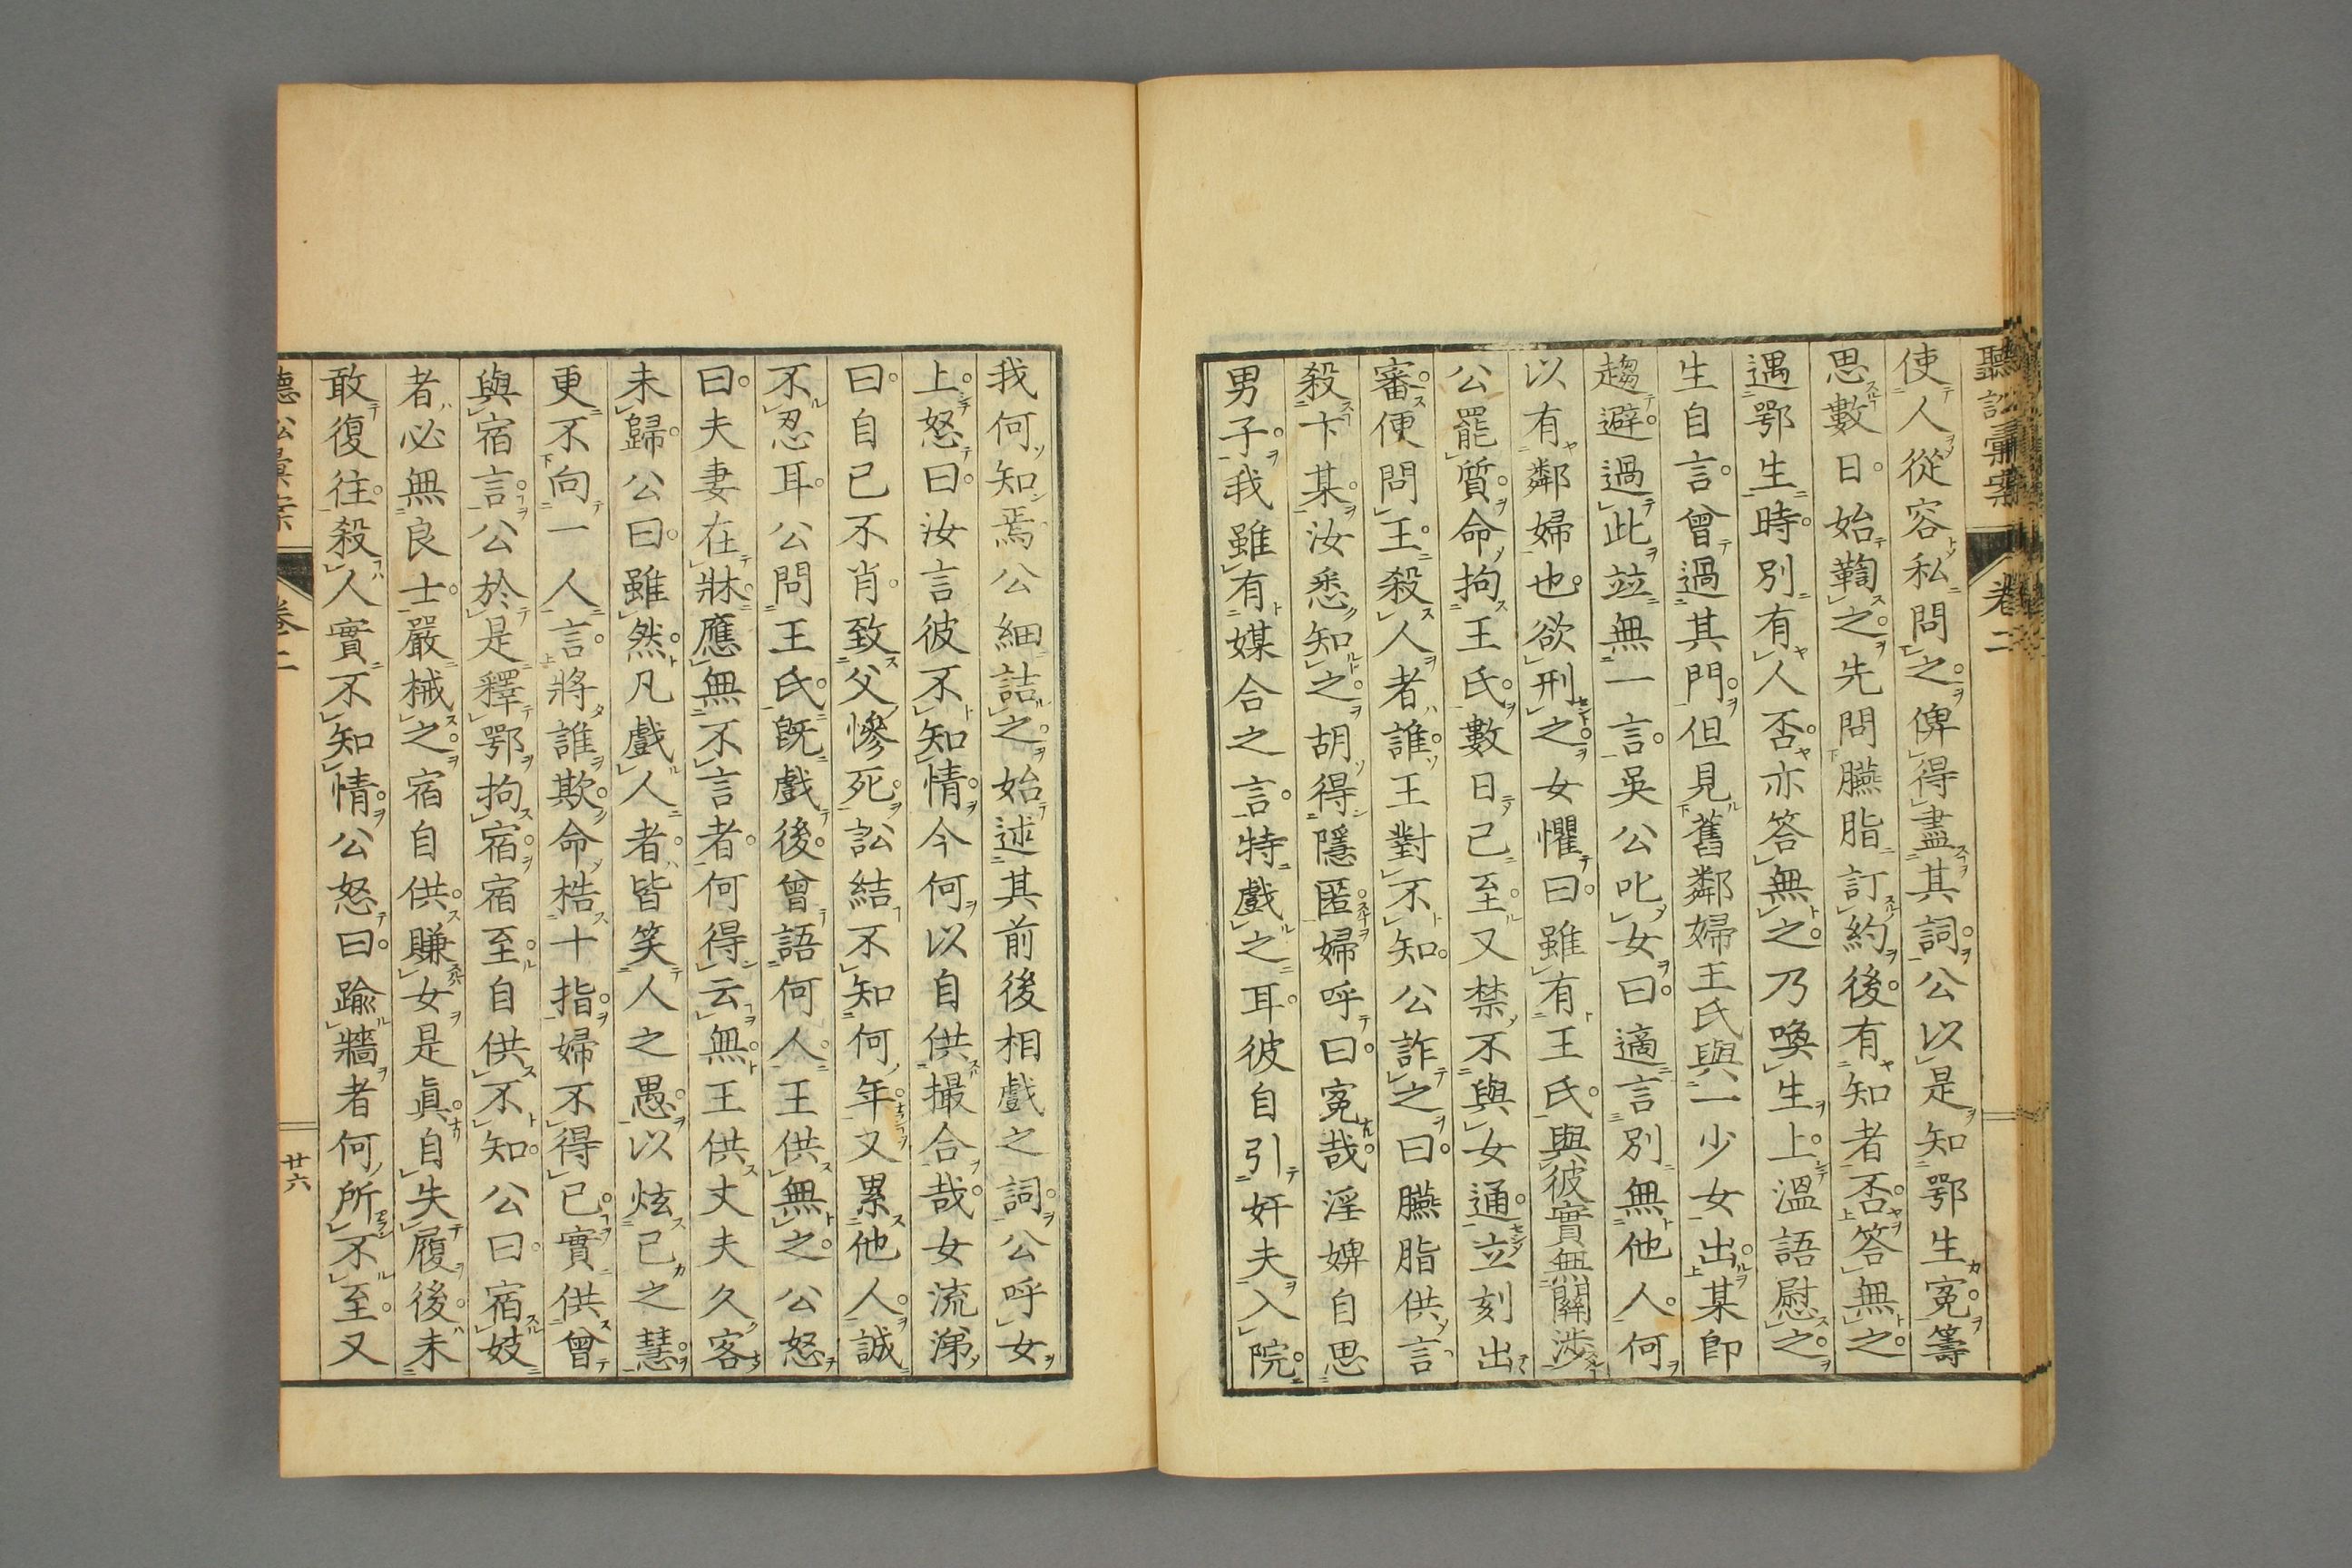 聽訟彙案 卷二
使人從容私問之俾得盡其詞公以是知鄂生冤籌
思數日始鞫之先問臙脂訂約後有知者否答無之
遇鄂生時別有人否亦答無之乃喚生上溫語慰之
生自言曾過其門但見舊鄰婦王氏與一少女出某卽
趨避過此竝無一言吳公叱女曰適言別無他人何
以有鄰婦也欲刑之女懼曰雖有王氏與彼實無關涉
公罷質命拘王氏數日已至又禁不與女通立刻出
審便問王殺人者誰王對不知公詐之曰臙脂供言
殺卞某汝悉知之胡得隱匿婦呼曰冤哉淫婢自思
男子我雖有媒合之言特戲之耳彼自引奸夫入院
我何知焉公細詰之始述其前後相戲之詞公呼女
上怒曰汝言彼不知情今何以自供撮合哉女流涕
曰自己不肖致父慘死訟結不知何年又累他人誠
不忍耳公問王氏既戲後曾語何人王供無之公怒
曰夫妻在牀應無不言者何得云無王供丈夫久客
未歸公曰雖然凡戲人者皆笑人之愚以炫己之慧
更不向一人言將誰欺命梏十指婦不得已實供曾
與宿言公於是釋鄂拘宿宿至自供不知公曰宿妓
者必無良士嚴械之宿自供賺女是眞自失履後未
敢復往殺人實不知情公怒曰踰牆者何所不至又
聽訟彙案 卷二 廿六